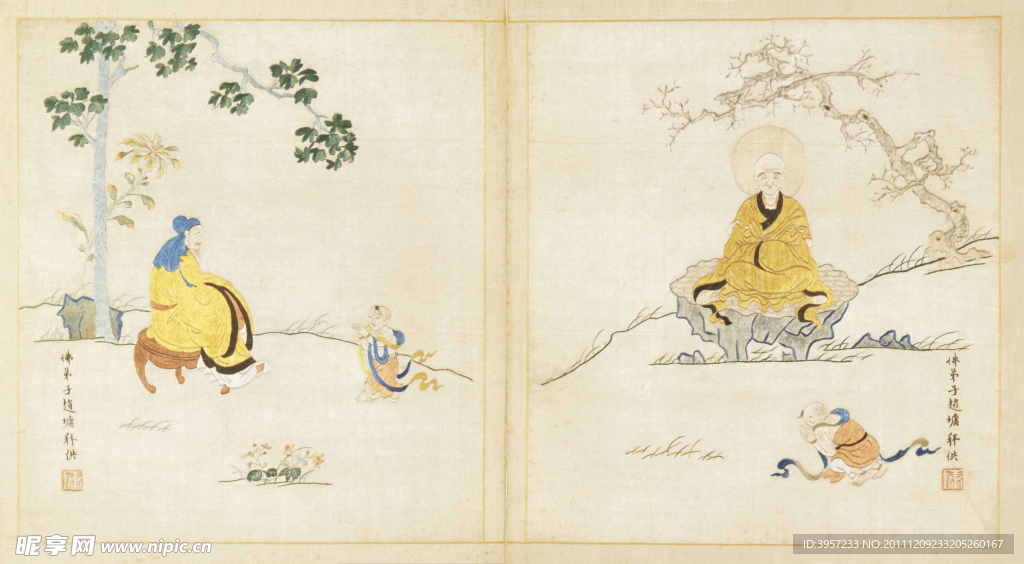 佛弟子趙墉拜供
佛弟子趙墉拜供
昵享网 www.nipic.cn
ID:3957233 NO:20111209233205260167